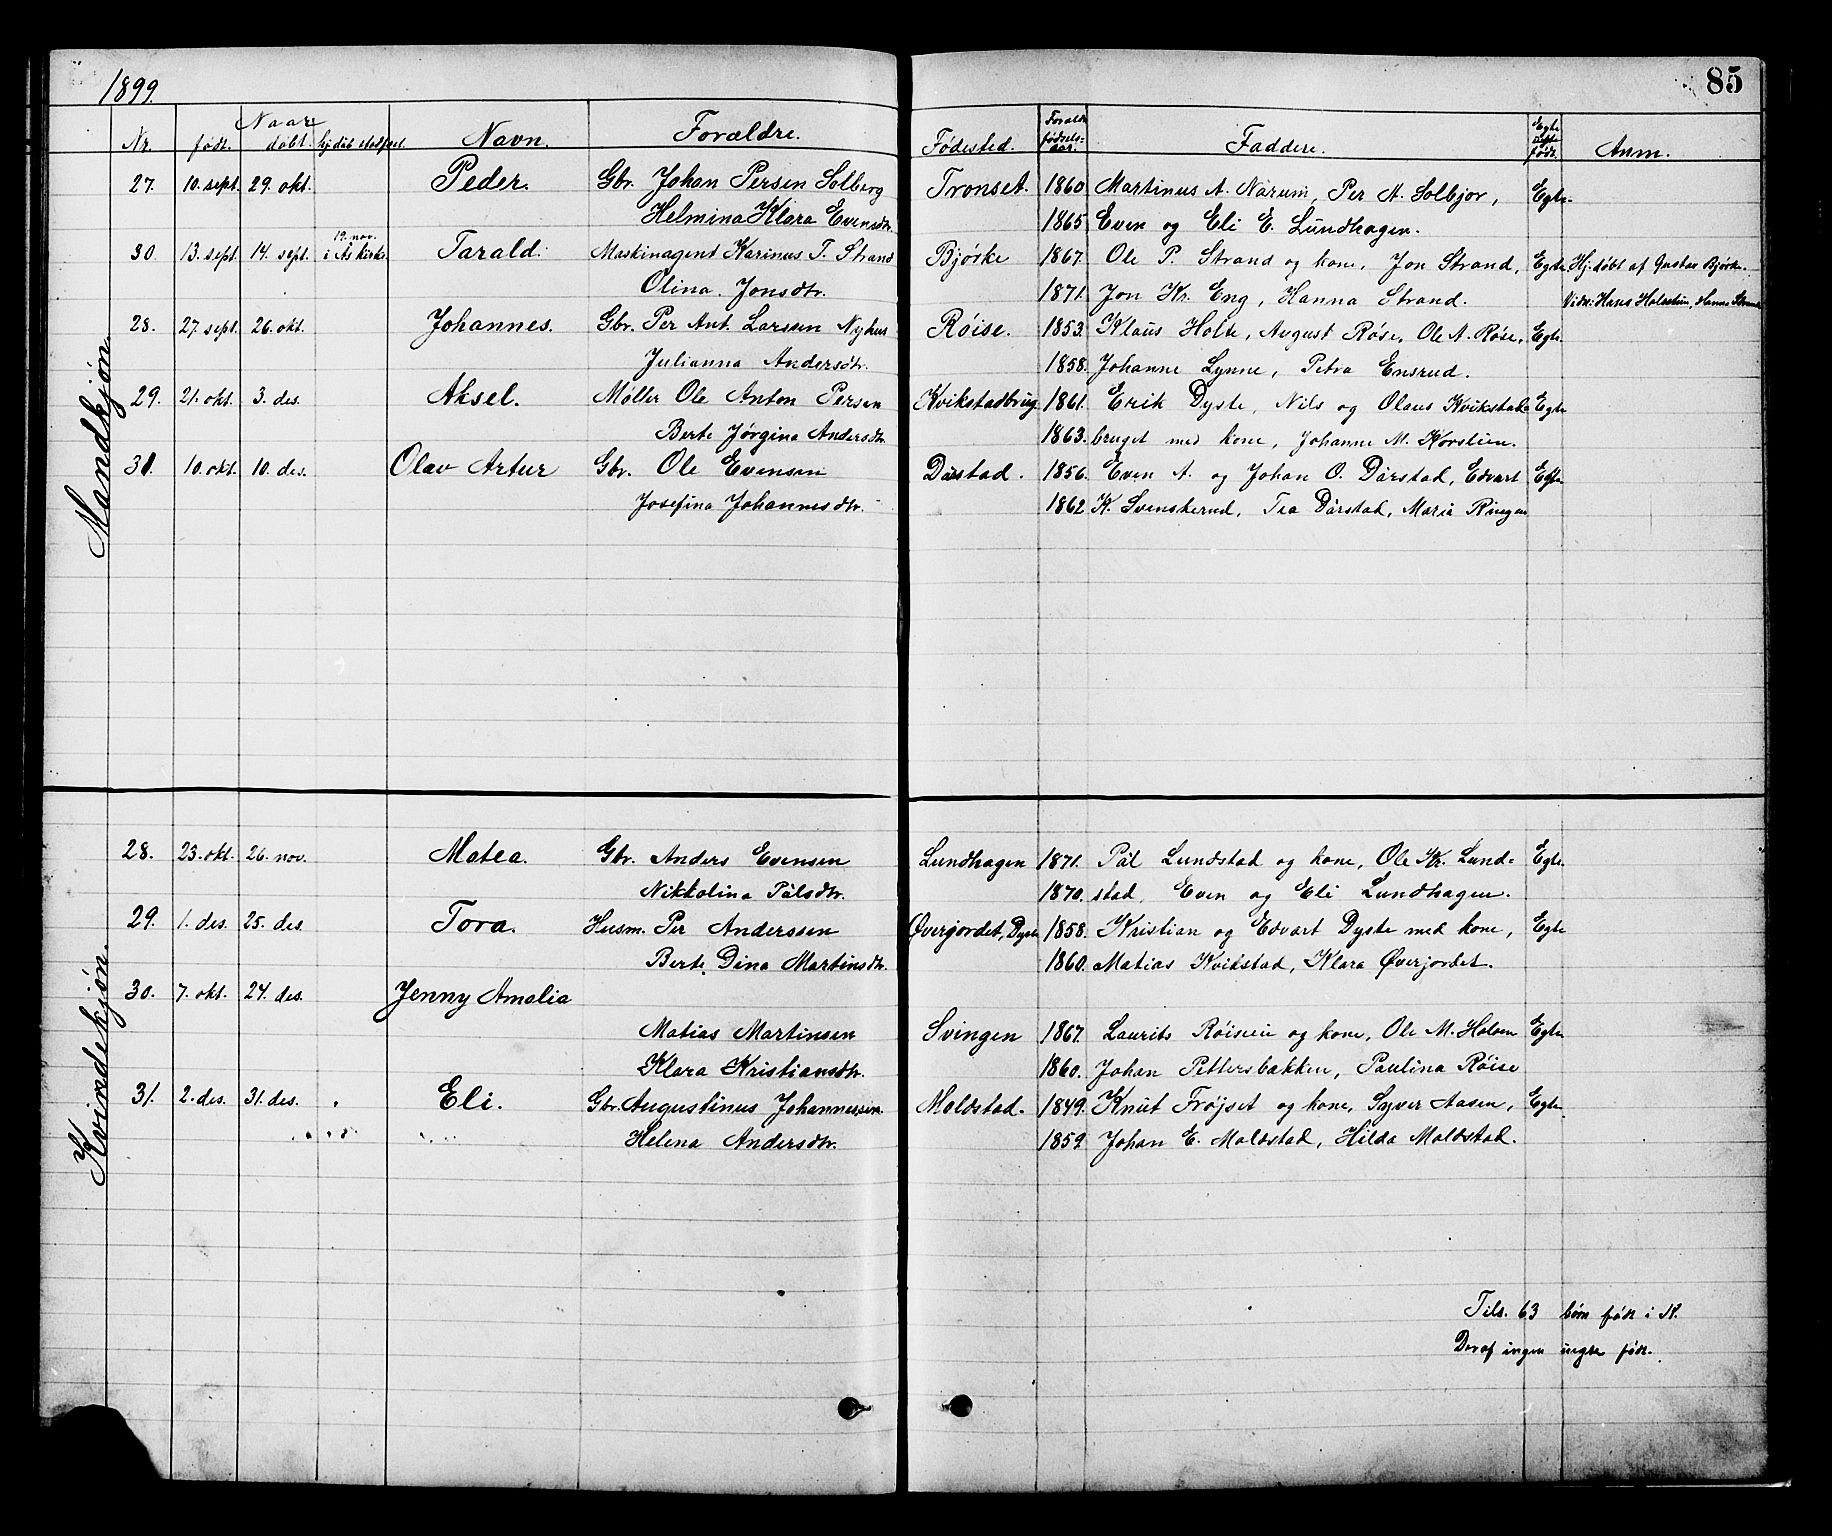 1899.
85
Naar
Nr. født. døbt. hj. døb. stadfæst. Navn. Forældre. Fødested. Forældr. fødsels-aar. Faddere. Egte uegte født. Anm.
Mandkjøn.
27. 10. sept. 29. okt. Peder. Gbr. Johan Persen Solberg Tronset. 1860 Martinus A. Narum, Per A. Solbjør, Egte.
Helmina Klara Evensdtr. 1865 Even og Eli E. Lundhagen.
19. nov.
30. 13. sept. 14. sept. i Ås kirke Tarald. Maskinagent Karinus T. Strand Bjørke 1867. Ole P. Strand og kone, Jon Strand, Egte Hj. døbt af Gustav Bjørke.
Olina Jonsdtr. 1871. Jon Kr. Eng, Hanna Strand. Vidn: Hans Holstein, Hanna Strand
28. 27. sept. 26. okt. Johannes. Gbr. Per Ant. Larsen Nyhus Røise. 1853. Klaus Holte, August Røse, Ole A. Røse, Egte.
Julianna Andersdtr. 1858. Johanne Lynne, Petra Ensrud.
29. 21. okt. 3. des. Aksel. Møller Ole Anton Persen Kvikstadbrug 1861. Erik Dyste, Nils og Olaus Kvikstad- Egte
Berte Jørgina Andersdtr. 1863. bruget med kone, Johanne M. Korslien.
31. 10. okt. 10. des. Olav Artur Gbr. Ole Evensen Dårstad. 1856. Even A. og Johan O. Dårstad, Edvart Egte
Josefina Johannesdtr. 1862 K. Svenskerud, Tea Dårstad, Maria Ringen
Kvindekjøn.
28. 23. okt. 26. nov. Matea. Gbr. Anders Evensen Lundhagen 1871. Pål Lundstad og kone, Ole Kr. Lund= Egte.
Nikkolina Pålsdtr. 1870. stad, Even og Eli Lundhagen.
29. 1. des. 25. des. Tora. Husm. Per Anderssen Øvergjordet, Dyste 1858. Kristian og Edvart Dyste med kone, Egte
Berte Dina Martinsdtr. 1860. Matias Kvikstad, Klara Øverjordet.
30. 7. okt. 24. des. Jenny Amalia
Matias Martinsen Svingen 1867. Laurits Røiseie og kone, Ole M. Holom Egte
Klara Kristiansdtr. 1860. Johan Pettersbakken, Paulina Røise
31. 2. des. 31. des. Eli. Gbr. Augustinus Johannessen. Moldstad. 1849. Knut Frøjset og kone, Syver Aasen, Egte
Helena Andersdtr. 1859 Johan E. Moldstad, Hilda Moldstad.
Tils. 63 børn født i N.
Deraf ingen uegte født.